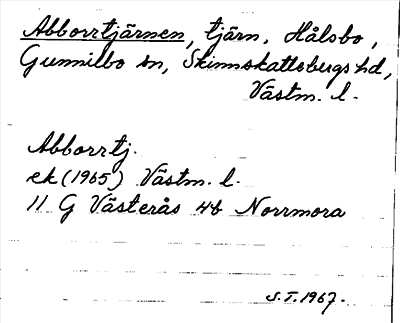 Abborrtjärnen, tjärn, Hålsbo,
Gunnilbo sn, Skinnskattebergs hd,
Västm. l.
Abborrtj.
ek (1965) Västm. l.
11 G Västerås 4b Norrmora
S.T. 1967.